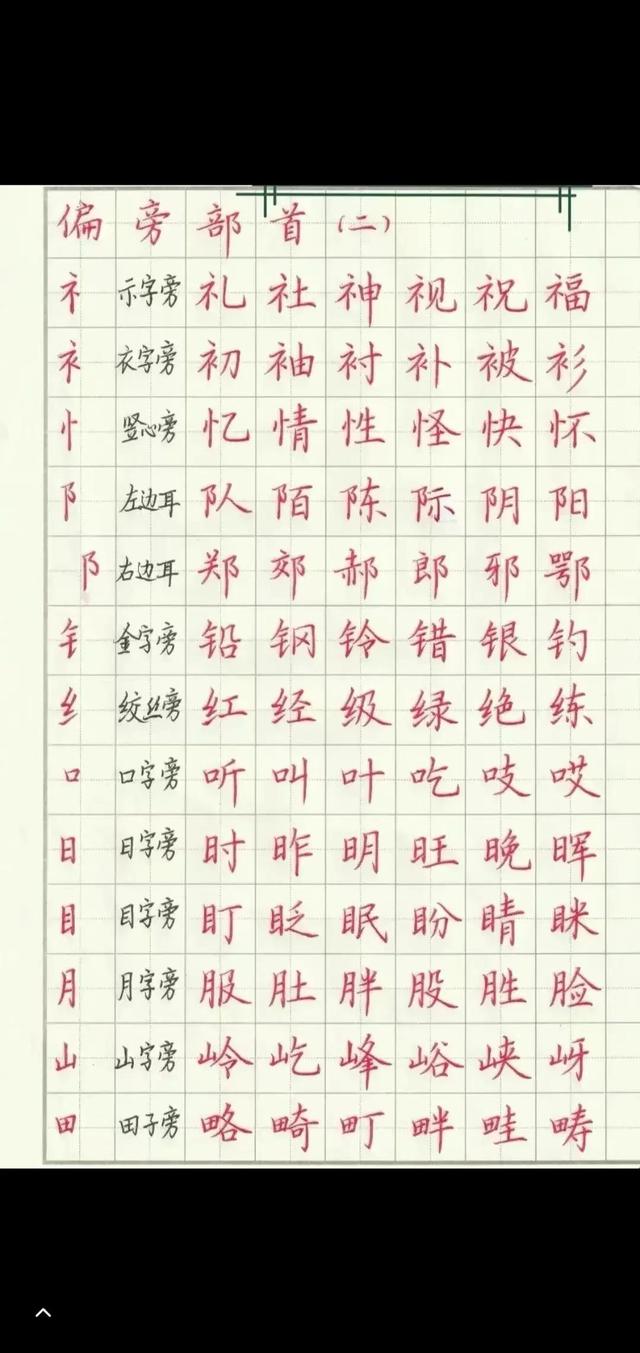 偏旁部首（二）
礻 示字旁 礼 社 神 视 祝 福
衤 衣字旁 初 袖 衬 补 被 衫
忄 竖心旁 忆 情 性 怪 快 怀
阝 左边耳 队 陌 陈 际 阴 阳
阝 右边耳 郑 郊 郝 郎 邪 鄂
钅 金字旁 铅 钢 铃 错 银 钓
纟 绞丝旁 红 经 级 绿 绝 练
口 口字旁 听 叫 叶 吃 吱 哎
日 日字旁 时 昨 明 旺 晚 晖
目 目字旁 盯 眨 眠 盼 睛 眯
月 月字旁 服 肚 胖 股 胜 脸
山 山字旁 岭 屹 峰 峪 峡 岈
田 田子旁 略 畸 町 畔 畦 畴